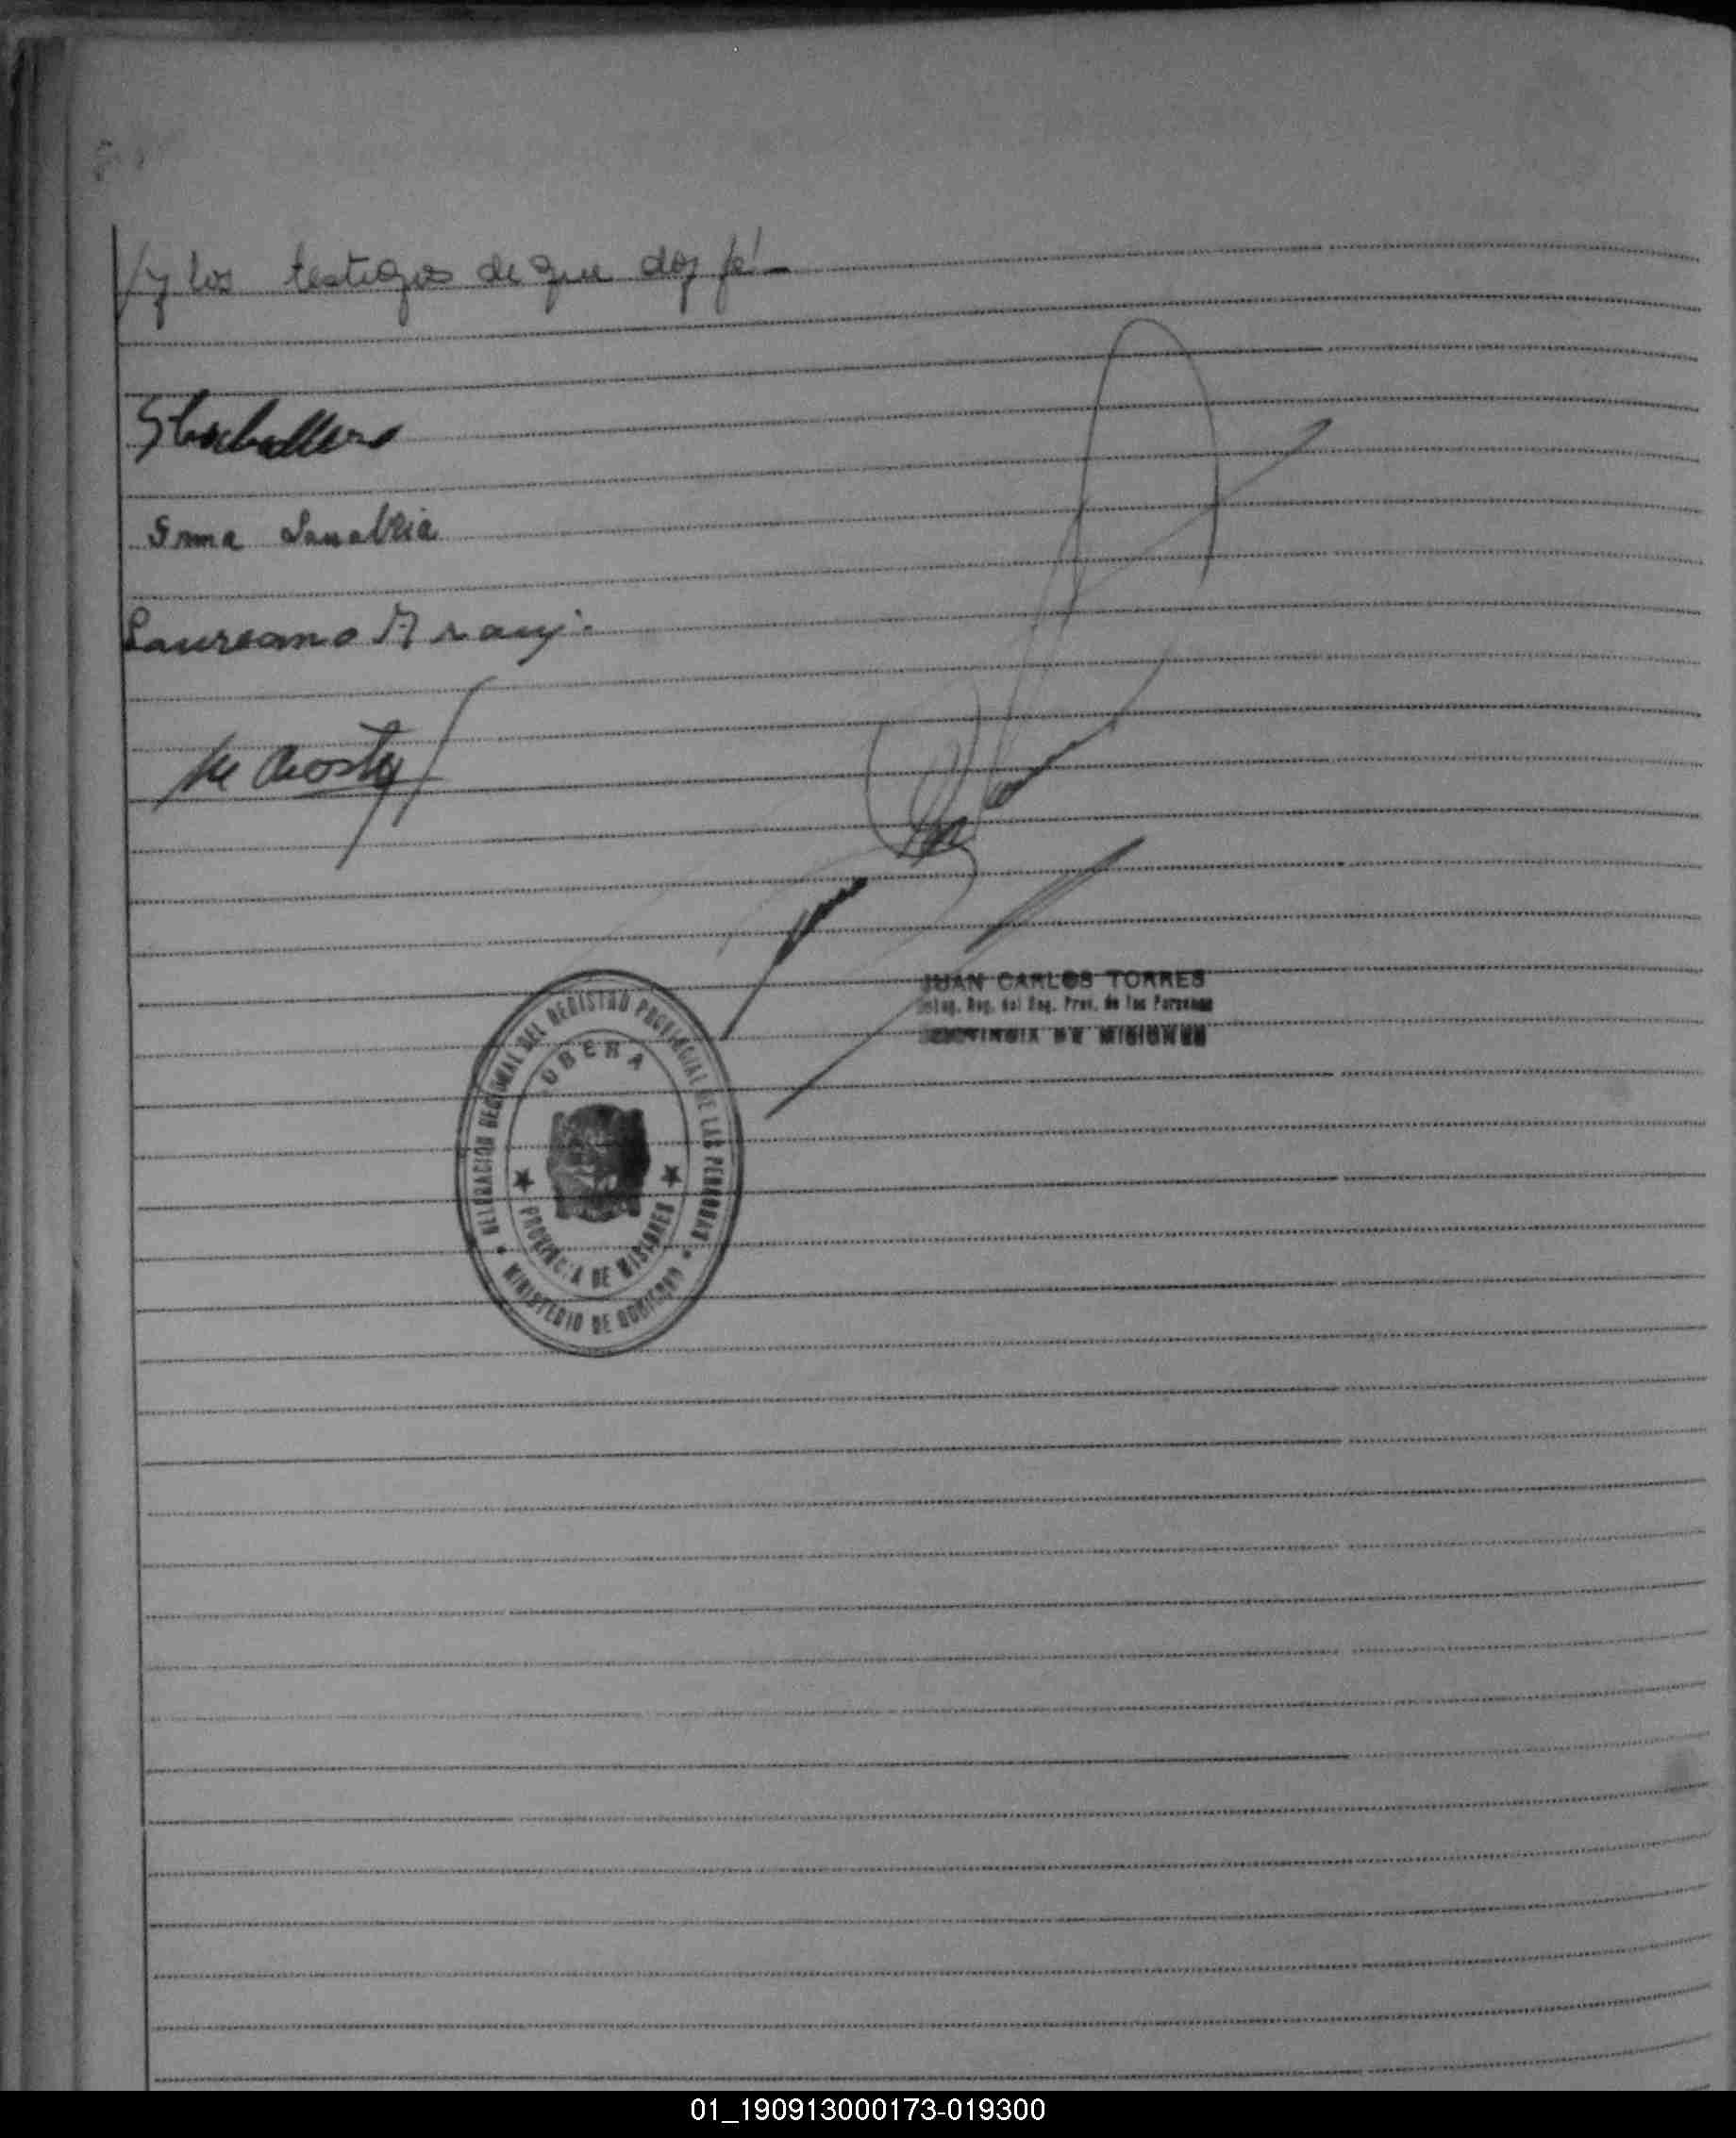 /y los testigos de que doy fé -
Caballero
Irma Sanabria
Laureano Arauj.
M Acosta
JUAN CARLOS TORRES
Deleg. Reg. del Reg. Prov. de las Personas
PROVINCIA DE MISIONES
DELEGACION REGIONAL DEL REGISTRO PROVINCIAL DE LAS PERSONAS
OBERA
PROVINCIA DE MISIONES
MINISTERIO DE GOBIERNO
01_190913000173-019300